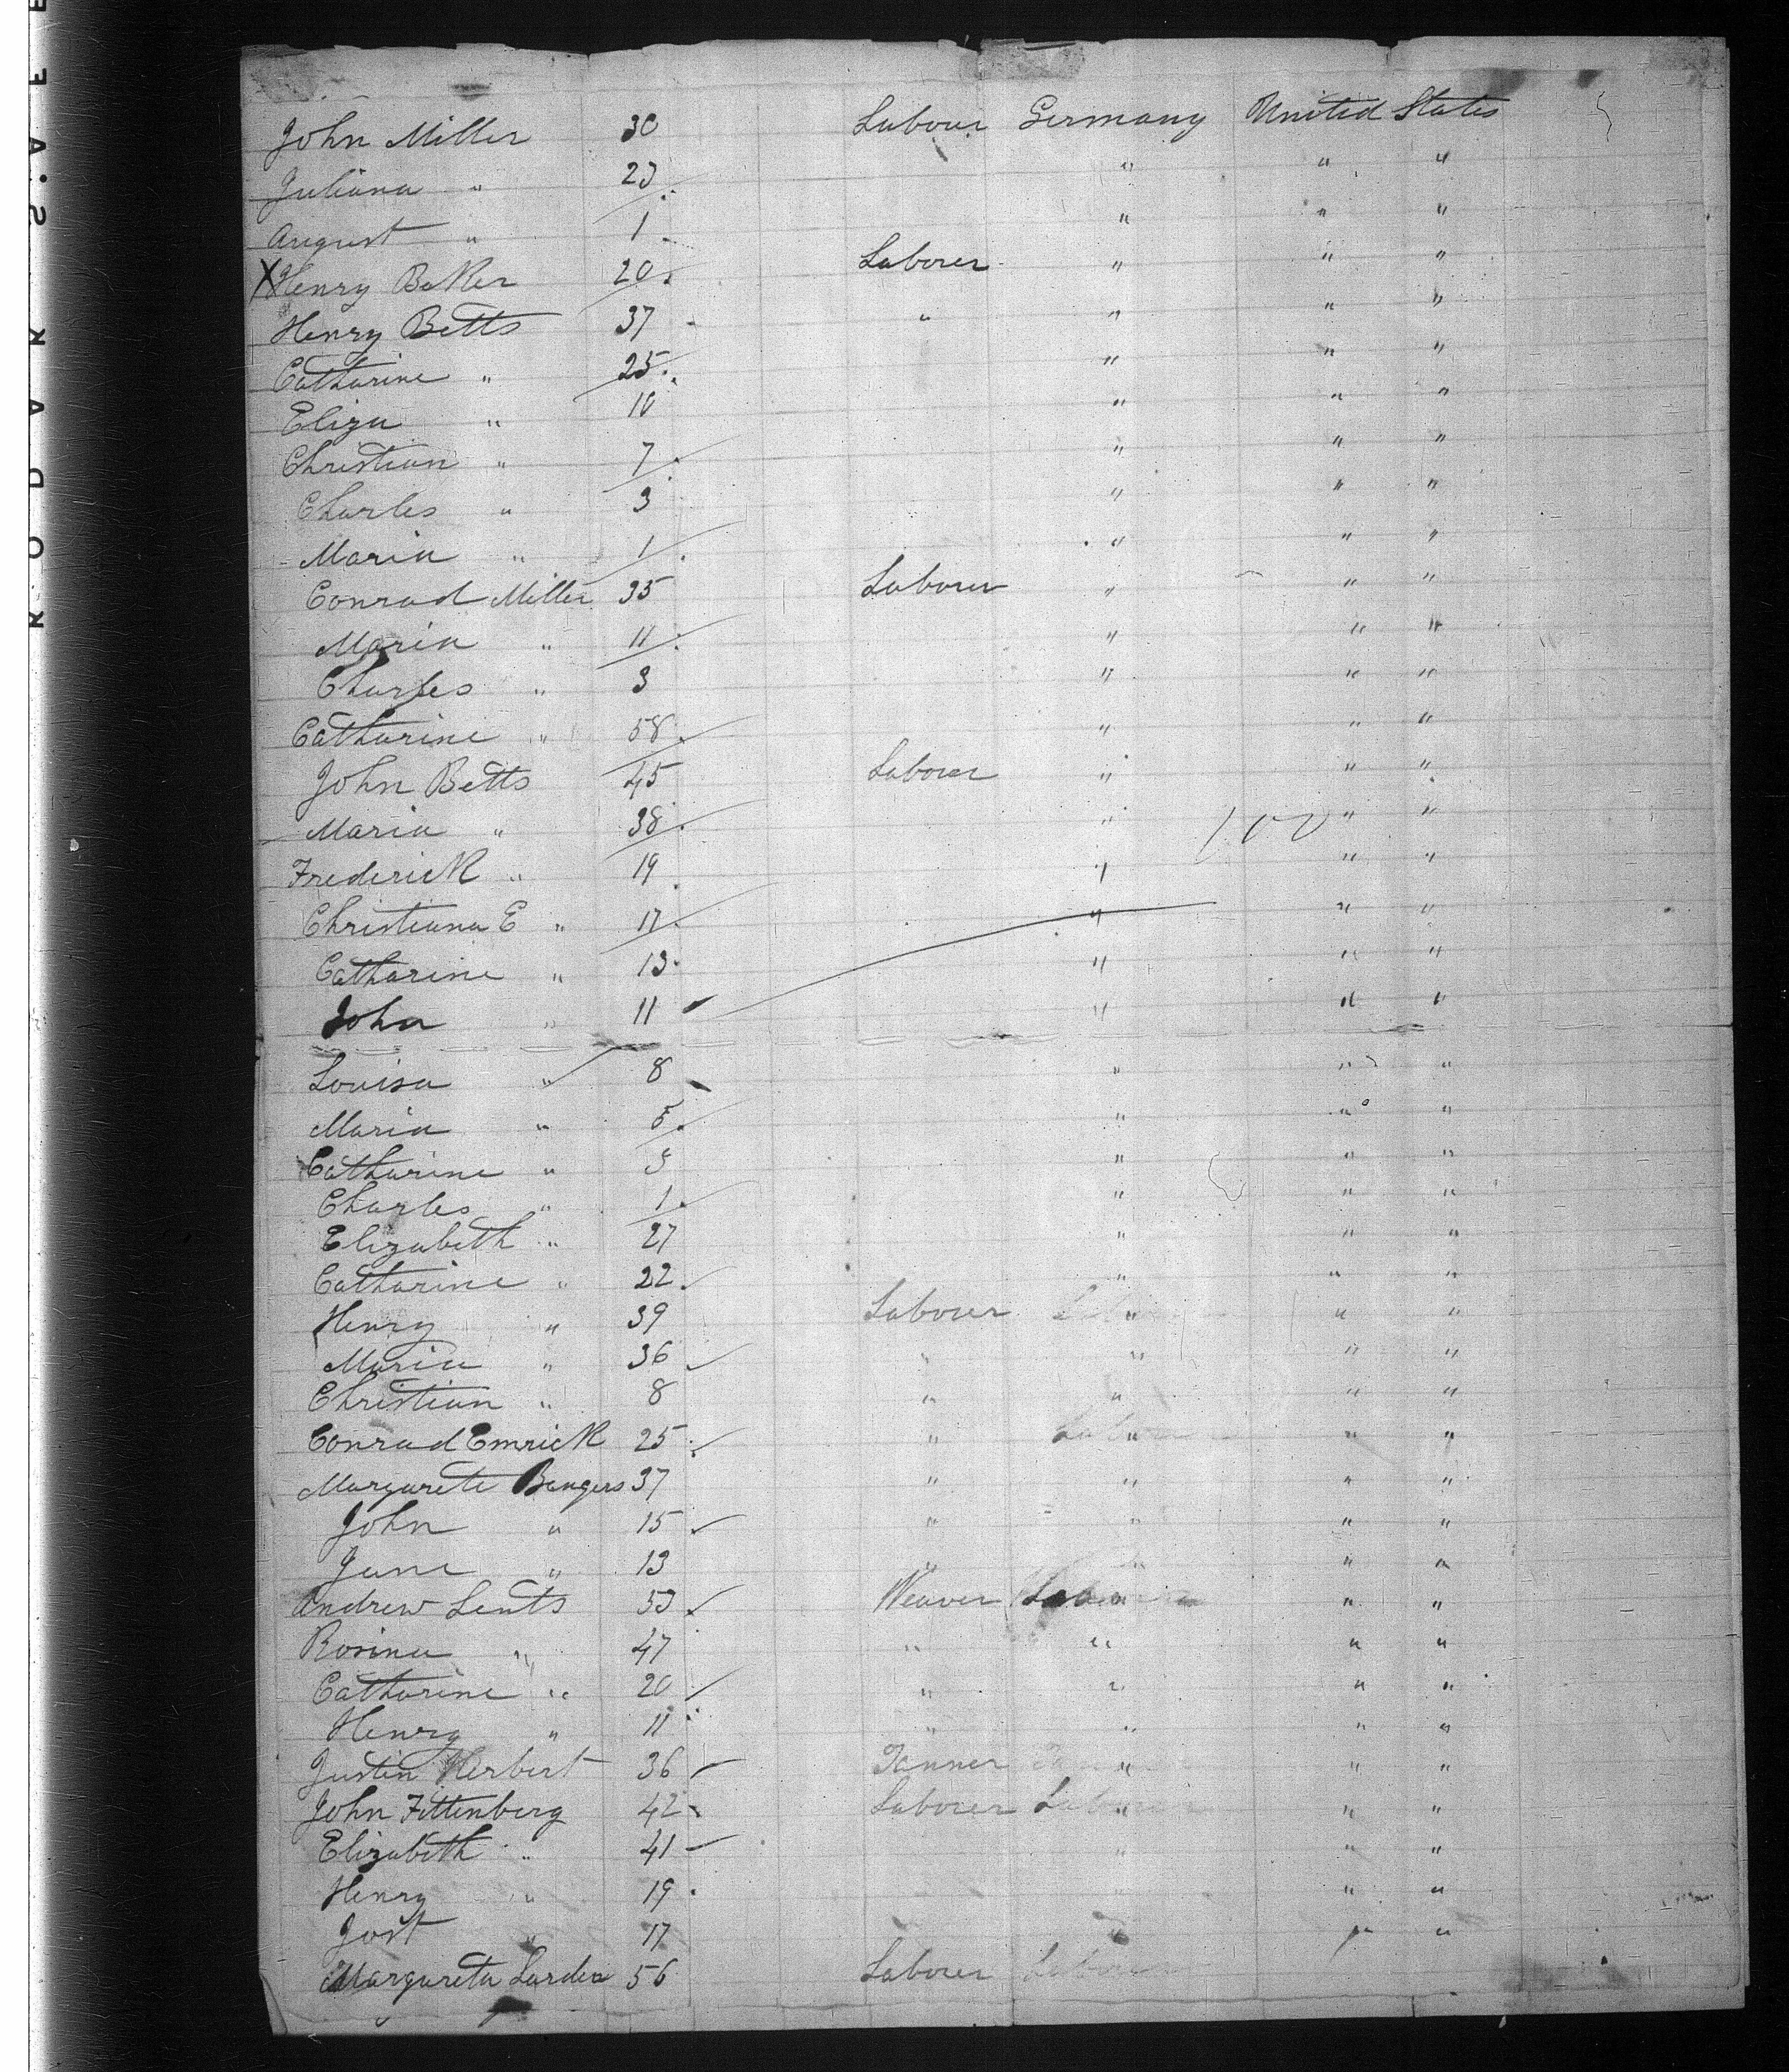 John Miller 30 Labour Germany United States
Juliana " 23 " " "
August " 1 " " "
X Henry Baker 20 Laborer " " "
Henry Betts 37 " " " "
Catharine " 25 " " "
Eliza " 10 " " "
Christian " 7 " " "
Charles " 3 " " "
Maria " 1 " " "
Conrad Miller 35 Laborer " " "
Maria " 11 " " "
Charles " 3 " " "
Catharine " 58 " " "
John Betts 45 Laborer " " "
Maria " 38 " " "
Frederick " 19 " " "
Christiana E " 17 " " "
Catharine " 13 " " "
John " 11 " " "
Louisa " 8 " " "
Maria " 5 " " "
Catharine " " " "
Charles " 1 " " "
Elizabeth " 27 " " "
Catharine " 22 " " "
Henry " 39 Laborer " " "
Maria " 36 " " " "
Christian " 8 " " " "
Conrad Emrick 25 " " " "
Margarete 37 " " " "
John " 15 " " " "
Jane " 13 " " " "
Andrew Lents 53 Weaver " " "
Rosina " 47 " " " "
Catharine " 20 " " " "
Henry " 11 " " " "
Justin Herbert 36 Tanner " " "
John Fittenberg 42 Laborer " " "
Elizabeth " 41 " " "
Henry " 19 " "
Jost " 17 " " "
Margareta 56 Laborer